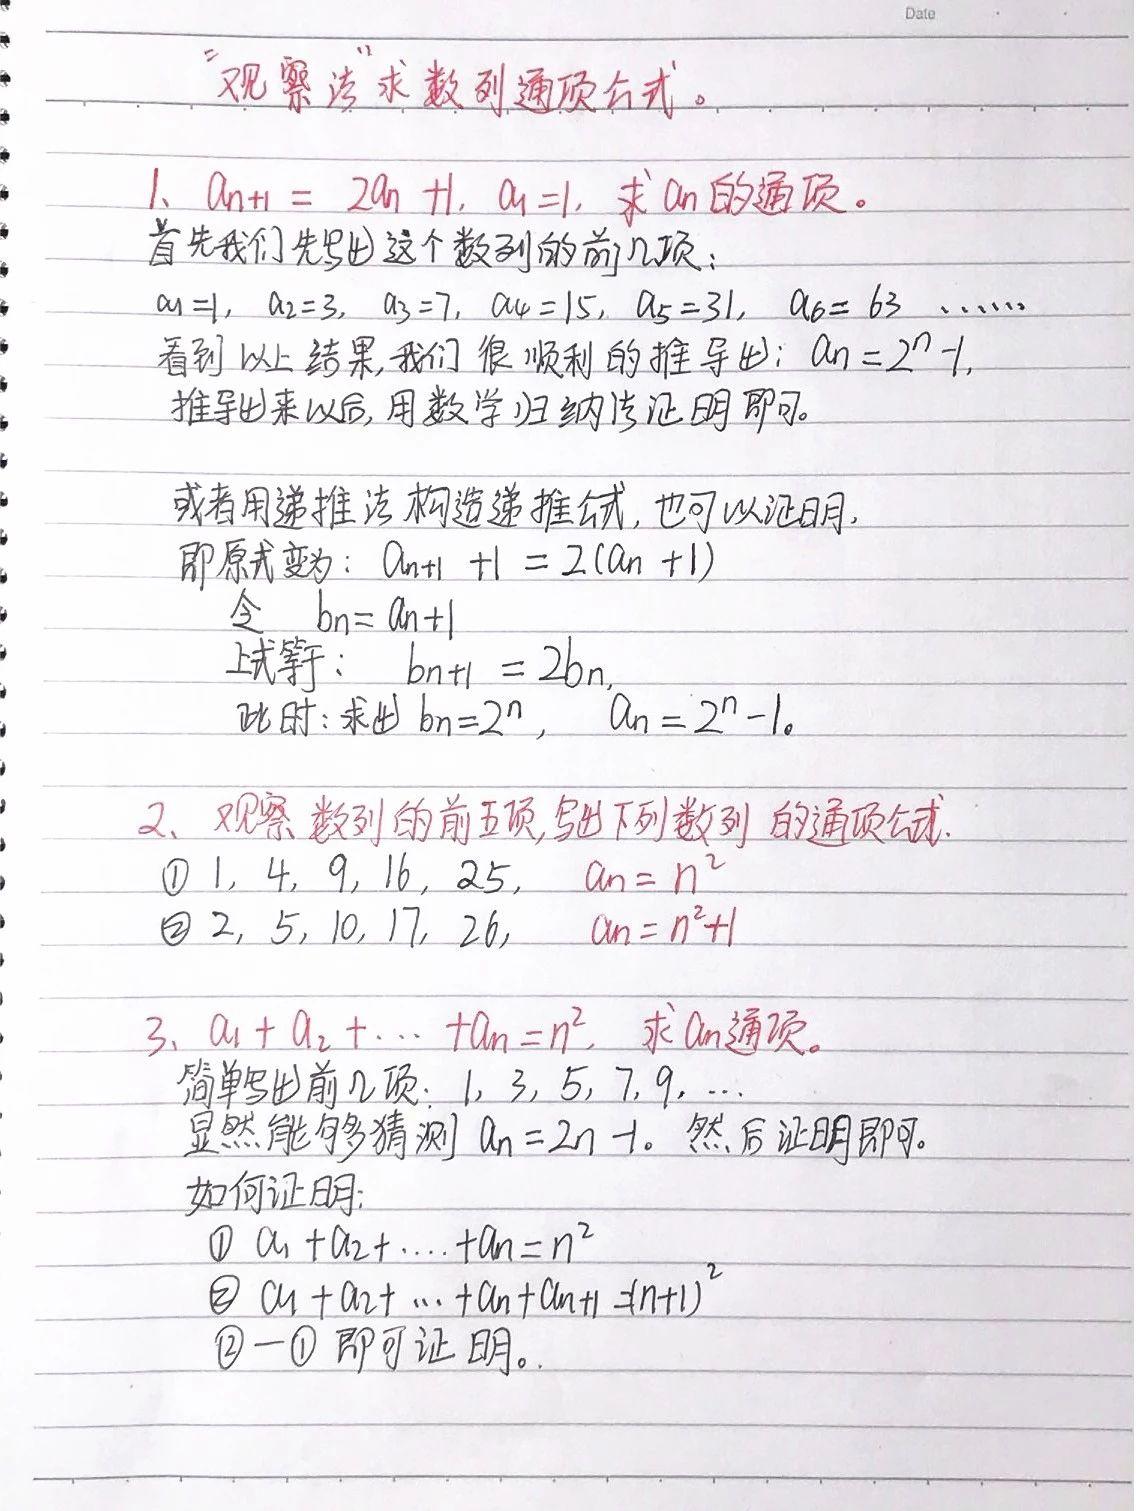 Date
“观察法”求数列通项公式。
1、an+1 = 2an +1, a1=1, 求an的通项。
首先我们先写出这个数列的前几项:
a1=1, a2=3, a3=7, a4=15, a5=31, a6=63 ……
看到以上结果,我们很顺利的推导出: an=2ⁿ-1,
推导出来以后,用数学归纳法证明即可。
或者用递推法构造递推公式,也可以证明,
即原式变为: an+1 +1 = 2(an +1)
令 bn=an+1
上式等于: bn+1 = 2bn,
此时:求出bn=2ⁿ, an=2ⁿ-1。
2、观察数列的前五项,写出下列数列的通项公式.
① 1, 4, 9, 16, 25, an=n²
② 2, 5, 10, 17, 26, an=n²+1
3、a1+a2+…+an=n², 求an通项。
简单写出前几项: 1, 3, 5, 7, 9, …
显然能够猜测an=2n-1。然后证明即可。
如何证明:
① a1+a2+….+an=n²
② a1+a2+…+an+an+1=(n+1)²
②-①即可证明。